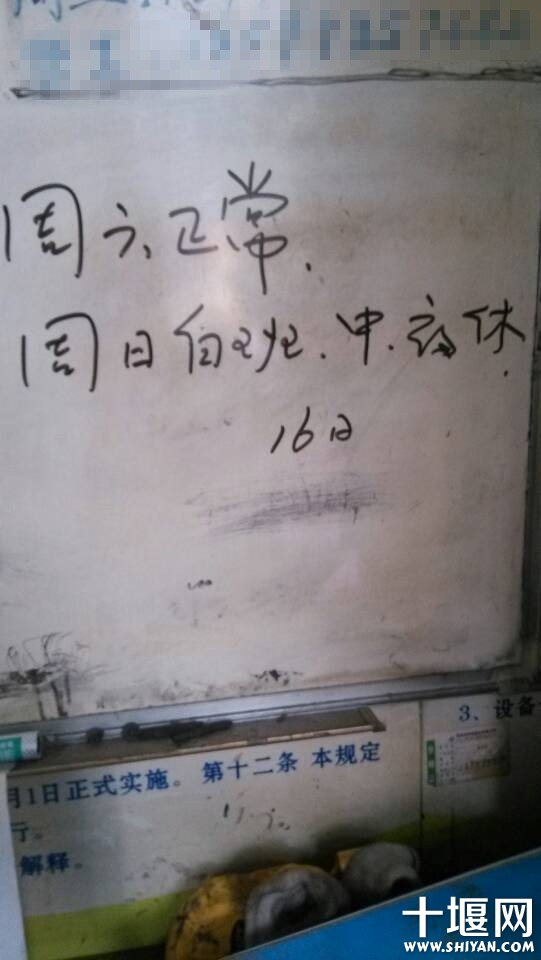 周六正常.
周日白班.中.夜休.
16日
3、设备
月1日正式实施。第十二条 本规定
行。
解释。
十堰网
WWW.SHIYAN.COM